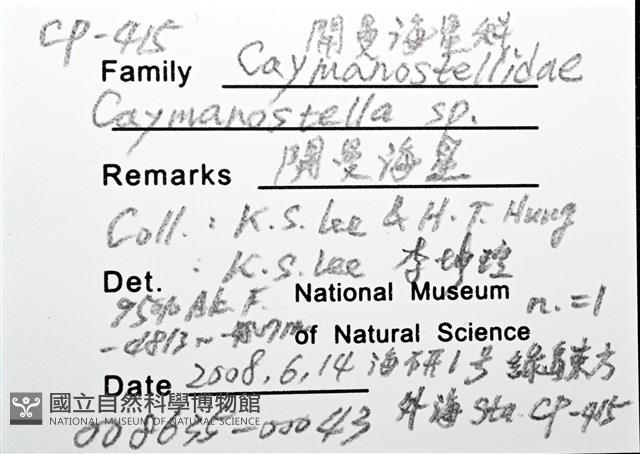 CP-415 開曼海星科
Family Caymanostellidae
Caymanostella sp.
Remarks 開曼海星
Coll. : K.S. Lee & H.T. Hung
Det. : K.S. Lee 李坤瑄
95% Alc. F. National Museum n.=1
-4813~ of Natural Science
Date 2008.6.14 海研1号 綠島東方
外海 Sta. CP-415
國立自然科學博物館
NATIONAL MUSEUM OF NATURAL SCIENCE
008055-00043